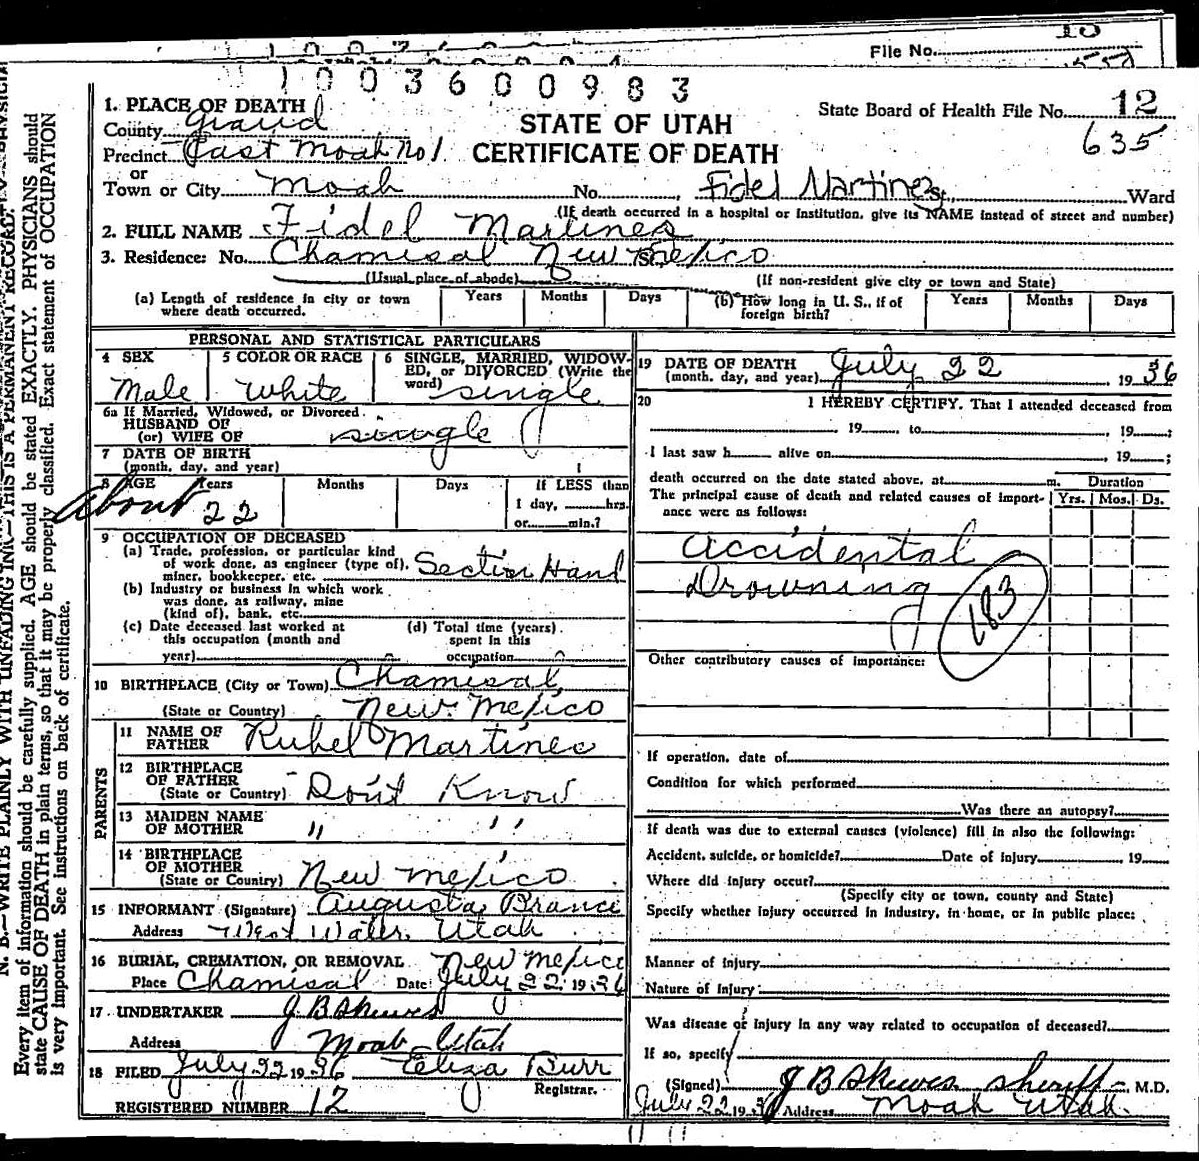 File No.
1003600983
1. PLACE OF DEATH
County Grand
STATE OF UTAH
CERTIFICATE OF DEATH
State Board of Health File No. 12
635
Precinct East Moab No 1
or
Town or City Moab No. Fidel Martinez St., Ward
(If death occurred in a hospital or institution, give its NAME instead of street and number)
2. FULL NAME Fidel Martines
3. Residence: No. Chamisal New Mexico
(Usual place of abode) (If non-resident give city or town and State)
(a) Length of residence in city or town where death occurred. Years Months Days (b) How long in U. S., if of foreign birth? Years Months Days
PERSONAL AND STATISTICAL PARTICULARS
4 SEX Male
5 COLOR OR RACE White
6 SINGLE, MARRIED, WIDOWED, or DIVORCED (Write the word) single
6a If Married, Widowed, or Divorced
HUSBAND OF
(or) WIFE OF single
7 DATE OF BIRTH
(month, day, and year)
8 AGE Years Months Days If LESS than
About 22 1 day, hrs.
or min.?
9 OCCUPATION OF DECEASED
(a) Trade, profession, or particular kind
of work done, as engineer (type of),
miner, bookkeeper, etc. Section Hand
(b) Industry or business in which work
was done, as railway, mine
(kind of), bank, etc.
(c) Date deceased last worked at
this occupation (month and
year)
(d) Total time (years)
spent in this
occupation
10 BIRTHPLACE (City or Town) Chamisal
(State or Country) New Mexico
PARENTS
11 NAME OF FATHER Rubel Martines
12 BIRTHPLACE OF FATHER
(State or Country) Don't Know
13 MAIDEN NAME OF MOTHER " "
14 BIRTHPLACE OF MOTHER
(State or Country) New Mexico
15 INFORMANT (Signature) Augusta
Address West Water, Utah
16 BURIAL, CREMATION, OR REMOVAL New Mexico
Place Chamisal Date July 22 1936
17 UNDERTAKER J. B. Skewes
Address Moab Utah
18 FILED July 22 1936 Eliza Burr
Registrar.
REGISTERED NUMBER 12
19 DATE OF DEATH
(month, day, and year) July 22 1936
20 I HEREBY CERTIFY, That I attended deceased from
19 , to , 19 ;
I last saw h alive on , 19 ;
death occurred on the date stated above, at m. Duration
The principal cause of death and related causes of importance were as follows: Yrs. Mos. Ds.
Accidental
Drowning
183
Other contributory causes of importance:
If operation, date of
Condition for which performed
Was there an autopsy?
If death was due to external causes (violence) fill in also the following:
Accident, suicide, or homicide? Date of injury 19
Where did injury occur?
(Specify city or town, county and State)
Specify whether injury occurred in industry, in home, or in public place:
Manner of Injury
Nature of Injury
Was disease or injury in any way related to occupation of deceased?
If so, specify
(Signed) J B Skewes Sheriff M.D.
July 22 1936 Address Moab Utah.
N. B.—WRITE PLAINLY WITH UNFADING INK—THIS IS A PERMANENT RECORD.
Every item of information should be carefully supplied. AGE should be stated EXACTLY. PHYSICIANS should
state CAUSE OF DEATH in plain terms, so that it may be properly classified. Exact statement of OCCUPATION
is very important. See instructions on back of certificate.